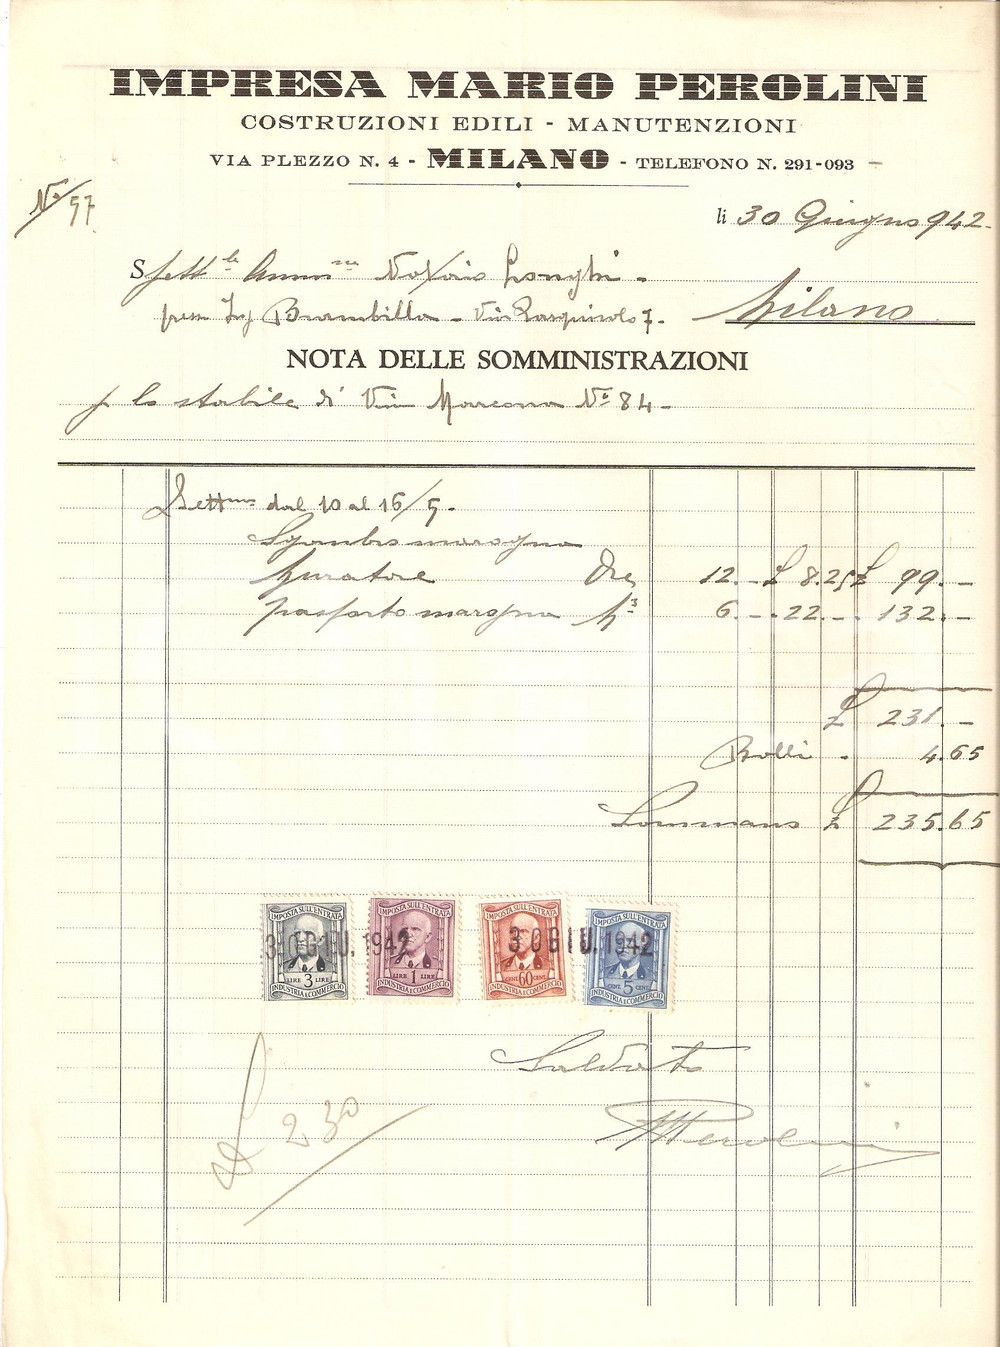 IMPRESA MARIO PEROLINI
COSTRUZIONI EDILI - MANUTENZIONI
VIA PLEZZO N. 4 - MILANO - TELEFONO N. 291-093
No 57
li 30 Giugno 942.
Spett.le Ammne Longhi -
presso Ing Brambilla - Via 7 - Milano
NOTA DELLE SOMMINISTRAZIONI
p lo stabile di Via Marcona No 84 -
Settna dal 10 al 16/5 -
Sgombro marogna
Muratore Ore 12.- £ 8.25 £ 99.-
trasporto marogna M3 6.- 22.- 132.-
£ 231.-
Bolli - 4.65
Sommano £ 235.65
IMPOSTA SULL'ENTRATA IMPOSTA SULL'ENTRATA IMPOSTA SULL'ENTRATA IMPOSTA SULL'ENTRATA
30 GIU. 1942 30 GIU. 1942
LIRE 3 LIRE LIRE 1 LIRE CENT. 60 CENT. CENT. 5 CENT.
INDUSTRIA E COMMERCIO INDUSTRIA E COMMERCIO INDUSTRIA E COMMERCIO INDUSTRIA E COMMERCIO
Saldato
£ 230
MPerolini